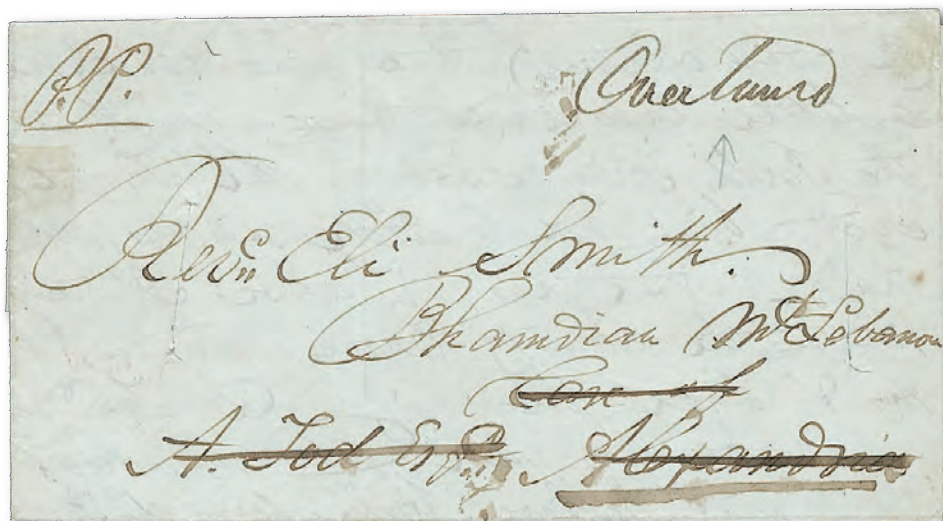 P.P.
Overland
Revd Eli Smith.
Bhamdian Mt Lebanon
Care of
A. Tod Esqr Alexandria